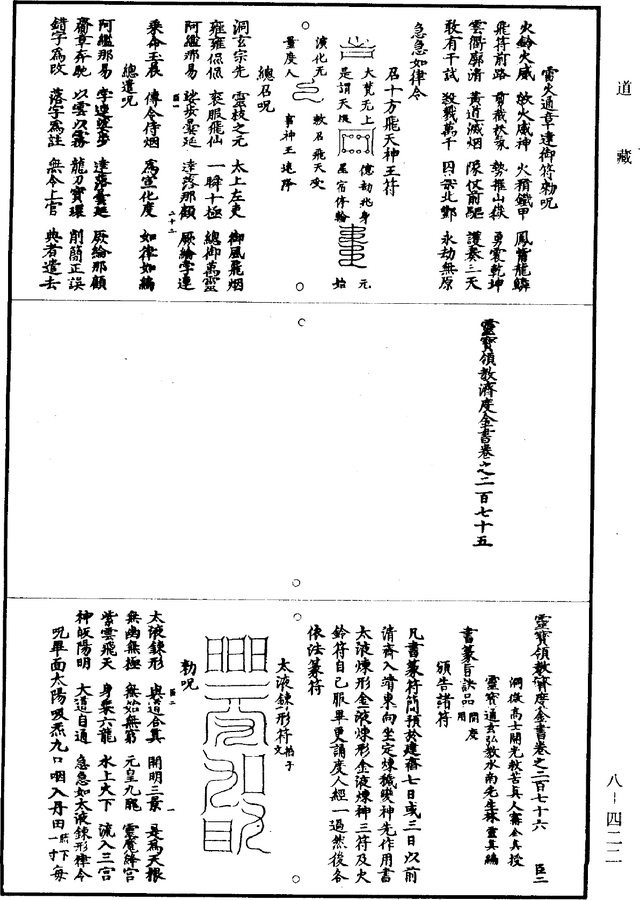 道藏
雷火通章達御符勅呪
火鈴火威　欻火威神　火䂎鐵甲　鳳觜龍鱗
飛符前路　剪截祅象　勢摧山嶽　勇震乾坤
雲衢廓清　黃道滅烟　隊仗前驅　護奏三天
敢有干試　殺戮萬千　囚於北酆　永劫無原
急急如律令
召十方飛天神王符
大梵无上　億劫兆身　元始
是謂天機　星宿停輪
演化元　敕召飛天受
量度人　事神王速降
總召呪
洞玄宗先　靈枝之元　太上左吏　御風飛烟
雍雍侃侃　衮服飛仙　一瞬十極　總御萬靈
阿䌥那易　娑發曇延　逹落那顧　厥䌥孛逮
臣一　二十二
乘命玉晨　傳令待烟　為宣化度　如律如綸
總遣呪
阿䌥那易　孛逮　逹落曇延　厥䌥那顧
齋章奔馳　以雲以霧　龍刀寶環　削簡正誤
錯字為改　落字為註　無令上官　典者遣去
靈寶領教濟度金書卷之二百七十五
靈寶領教濟度金書卷之二百七十六　臣二
洞微高士開光救苦真人甯全真授
靈寶通玄弘教水南先生林靈真編
書篆旨訣品　開度用
預告諸符
凡書篆符簡預於建齋七日或三日以前
清齋入靖東向坐定煉穢變神先作用書
太液煉形金液煉形金液煉神三符及火
鈴符自己服畢更誦度人經一過然後各
依法篆符
太液鍊形符
勅呪
太液鍊形　與道合真　開明三景　是為天根
臣二　一
無幽無極　無始無窮　元皇九龍　雲魔降宮
紫雲飛天　身乘六龍　水上火下　流入三宮
神皈陽明　大道自通　急急如太液鍊形律令
呪畢面太陽吸炁九口咽入丹田一點打下每
八－四二二